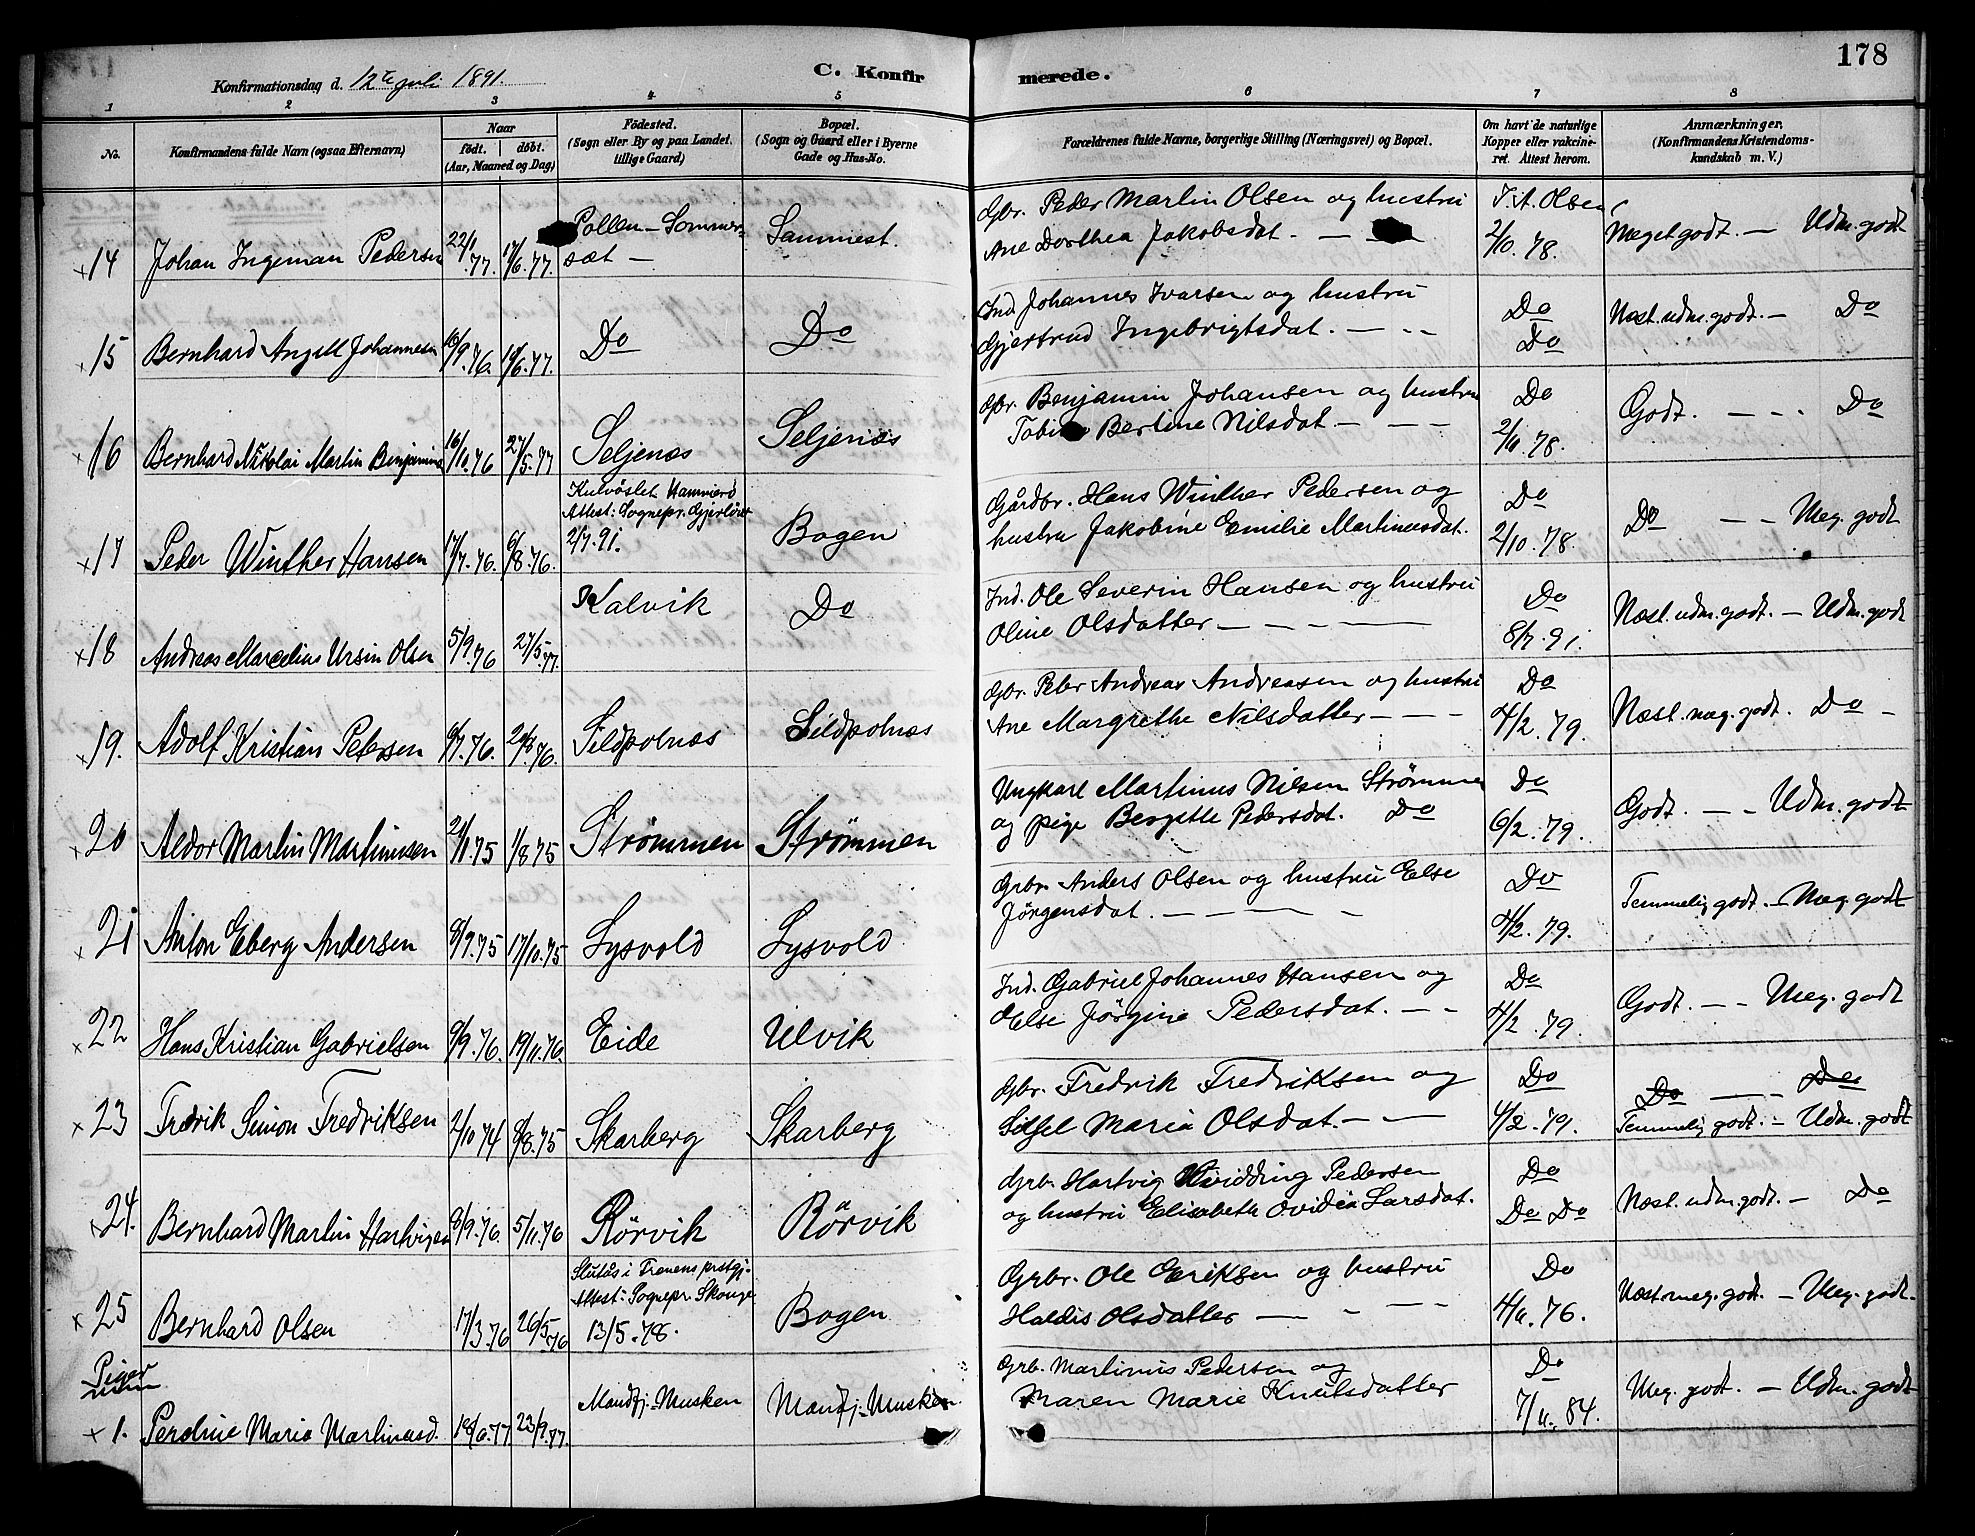 178
Konfirmationsdag d. 12te juli 1891.
C. Konfirmerede.
1 2 3 4 5 6 7 8
No.
Konfirmandens fulde Navn (ogsaa Efternavn)
Naar
födt. döbt.
(Aar, Maaned og Dag)
Födested.
(Sogn eller By og paa Landet
tillige Gaard)
Bopæl.
(Sogn og Gaard eller i Byerne
Gade og Hus-No.
Forældrenes fulde Navne, borgerlige Stilling (Næringsvei) og Bopæl.
Om havt de naturlige
Kopper eller vakcine-
ret. Attest herom.
Anmærkninger,
(Konfirmandens Kristendoms-
kundskab m. V.)
x14 Johan Ingeman Pedersen 22/1.77. 17/6.77. Pollen - Sommer-
sæt - Sammest.
Gbr. Peder Martin Olsen og hustru
Ane Dorthea Jakobsdat. — I.A. Olsen
2/10.78. Meget godt. — Udm. godt
x15 Bernhard Angell Johannesen 16/9.76. 17/6.77. Do Do
Ind. Johannes Ivarsen og hustru
Gjertrud Ingebrigtsdat. — Do
Do Næst. udm. godt. — Do
x16 Bernhard Nikolai Martin Benjamins 16/10.76 27/5.77 Seljenæs Seljenæs
Gbr. Benjamin Johansen og hustru
Berline Nilsdat — Do
2/10.78. Godt. — Do
x17 Peder Winther Hansen 17/7.76. 6/8.76. Hammerö
Attest: Sognepr.
2/7.91. Bogen
Gårdbr. Hans Winther Pedersen og
hustru Jakobine Emilie Martinusdat. Do
2/10.78. Do — Meg. godt
x18 Andreas Marcelius Ursin Olsen 5/9.76 27/5.77. Kalvik Do
Ind. Ole Severin Hansen og hustru
Oline Olsdatter — Do
8/7.91. Næst. udm. godt. — Udm. godt
x19. Adolf Kristian Petersen 6/7.76. 20/8.76. Sildpolnæs Sildpolnæs
Gbr. Peter Andreas Andreasen og hustru
Ane Margrethe Nilsdatter — Do
4/2.79. Næst. meg. godt. Do —
x20 Aldor Martin Martinusen 21/1.75 1/8.75 Strømmen Strømmen
Ungkarl Martinus Nilsen Strømmen
og pige Bergitte Pedersdat. Do Do
6/2.79. Godt. — Udm. godt
x21 Anton Eberg Andersen 8/7.75 17/10.75 Lysvold Lysvold
Grbr. Anders Olsen og hustru Else
Jørgensdat. — Do
4/2.79. Temmelig godt. — Meg. godt
x22 Hans Kristian Gabrielsen 9/9.76. 19/11.76. Eide Ulvik
Ind. Gabriel Johannes Hansen og
Else Jørgine Pedersdat. — Do
4/2.79. Godt. — Meg. godt
x23 Fredrik Simon Fredriksen 2/10.74 8/8.75 Skarberg Skarberg
Gbr. Fredrik Fredriksen og
Sissel Maria Olsdat. — Do
4/2.79. Do — Do
Temmelig godt. — Udm. godt
x24. Bernhard Martin Hartvigsen 8/9.76. 5/11.76 Rörvik Rörvik
Grb. Hartvig Hvidding Pedersen
og hustru Elisabeth Ovidia Larsdat. Do
Do Do Næst. udm. godt. — Do
x25 Bernhard Olsen 17/3.76 26/5.76 Slutås i Trænens prstgj.
Attest: Sognepr. Skouge
13/5.78. Bogen
Grbr. Ole Eriksen og hustru
Haldis Olsdatter — Do
4/11.76. Næst meg. godt. — Meg. godt.
Piger
x1. Perdine Maria Martinusd. 23/9.77. Mandfj. Musken Mandfj. Musken
Grb. Martinus Pedersen og
Maren Marie Knutsdatter Do
7/11.84. Meg. godt. — Udm. godt